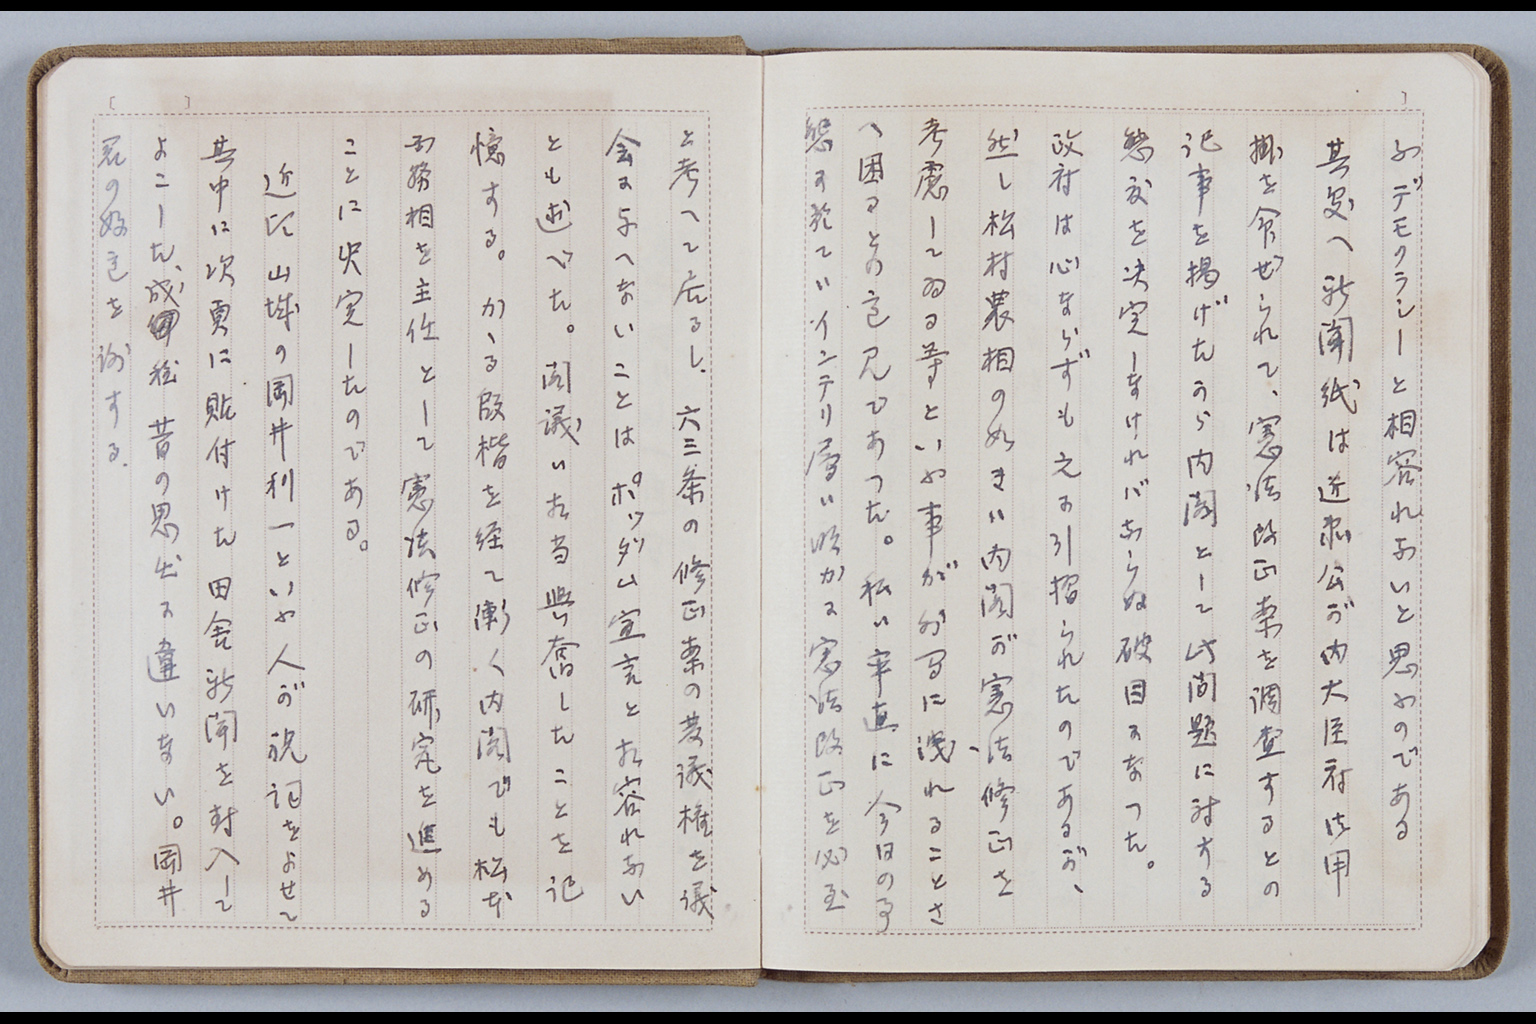 ふデモクラシーと相容れないと思ふのである
其処へ新聞紙は近衛公が内大臣府御用
掛を命ぜられて、憲法改正案を調査するとの
記事を掲げたから内閣として此問題に対する
態度を決定しなければならぬ破目になつた。
政府は心ならずも之に引摺られたのであるが、
然し松村農相の如きは内閣が憲法修正を
考慮してゐる等といふ事が外写に洩れることさ
へ困るとの意見であつた。私は率直に今日の
態に於てはインテリ層は明かに憲法改正を必至
と考へて居るし、六三条の修正案の発議権を議
会に与へないことはポツダム宣言と相容れない
とも述べた。閣議は相当興奮したことを記
憶する。かゝる段楷を経て漸く内閣でも松本
国務相を主任として憲法修正の研究を進める
ことに決定したのである。
近に山城の岡井利一といふ人が祝詞をよせて
其中に次頁に貼付けた田舎新聞を封入して
よこした、成程昔の思出に違いない。岡井
君の好意を謝する.